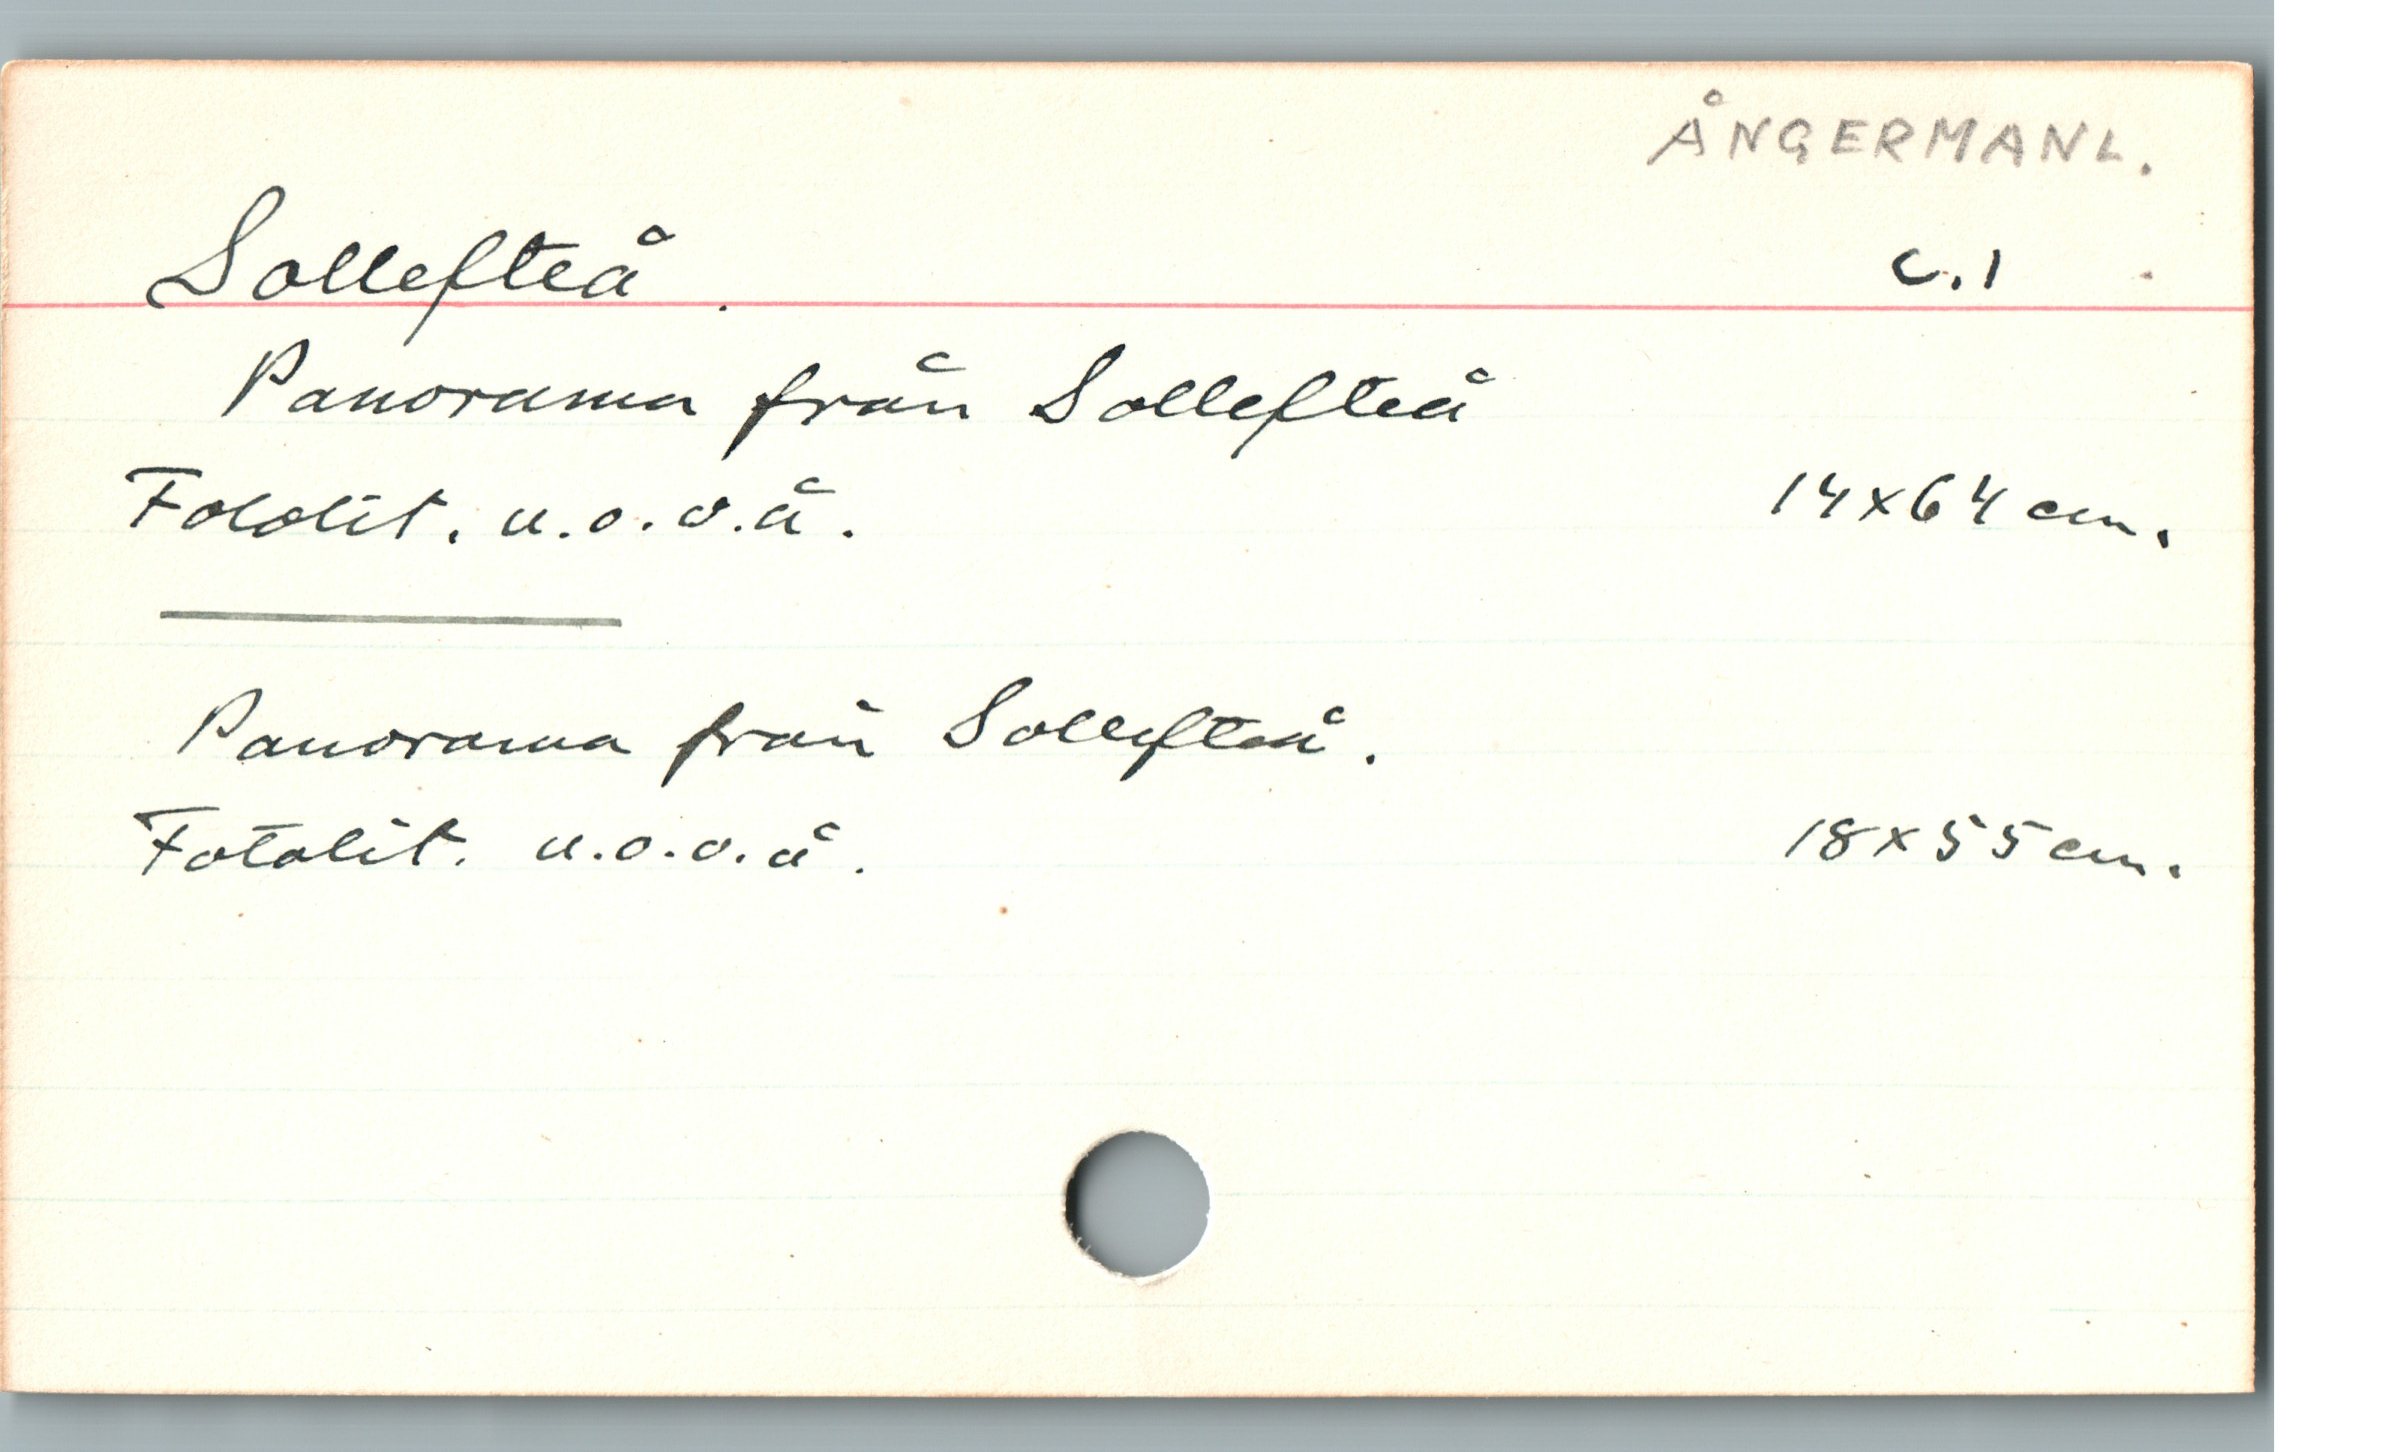 ÅNGERMANL.
Sollefteå. C.1
Panorama från Sollefteå
Fotolit. u.o.o.å. 14x64 cm.
Panorama från Sollefteå.
Fotolit. u.o.o.å. 18x55 cm.